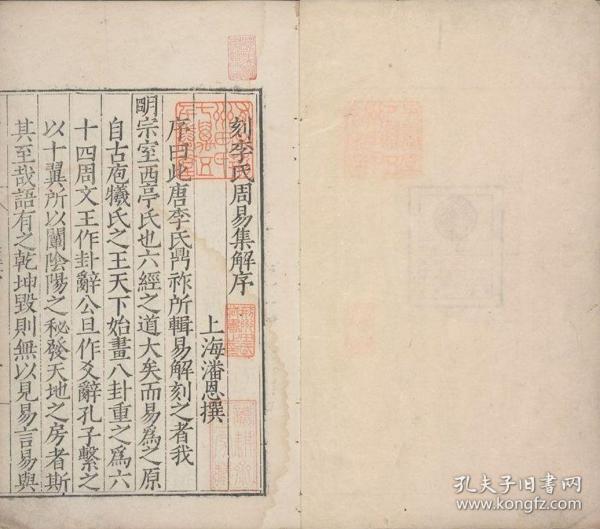 刻李氏周易集解序
上海潘恩撰
序曰此唐李氏鼎祚所輯易解刻之者我
明宗室西亭氏也六經之道大矣而易為之原
自古庖犧氏之王天下始畫八卦重之為六
十四周文王作卦辭公旦作爻辭孔子繫之
以十翼所以闡陰陽之秘發天地之房者斯
其至哉語有之乾坤毀則無以見易言易與
孔夫子旧书网
www.kongfz.com